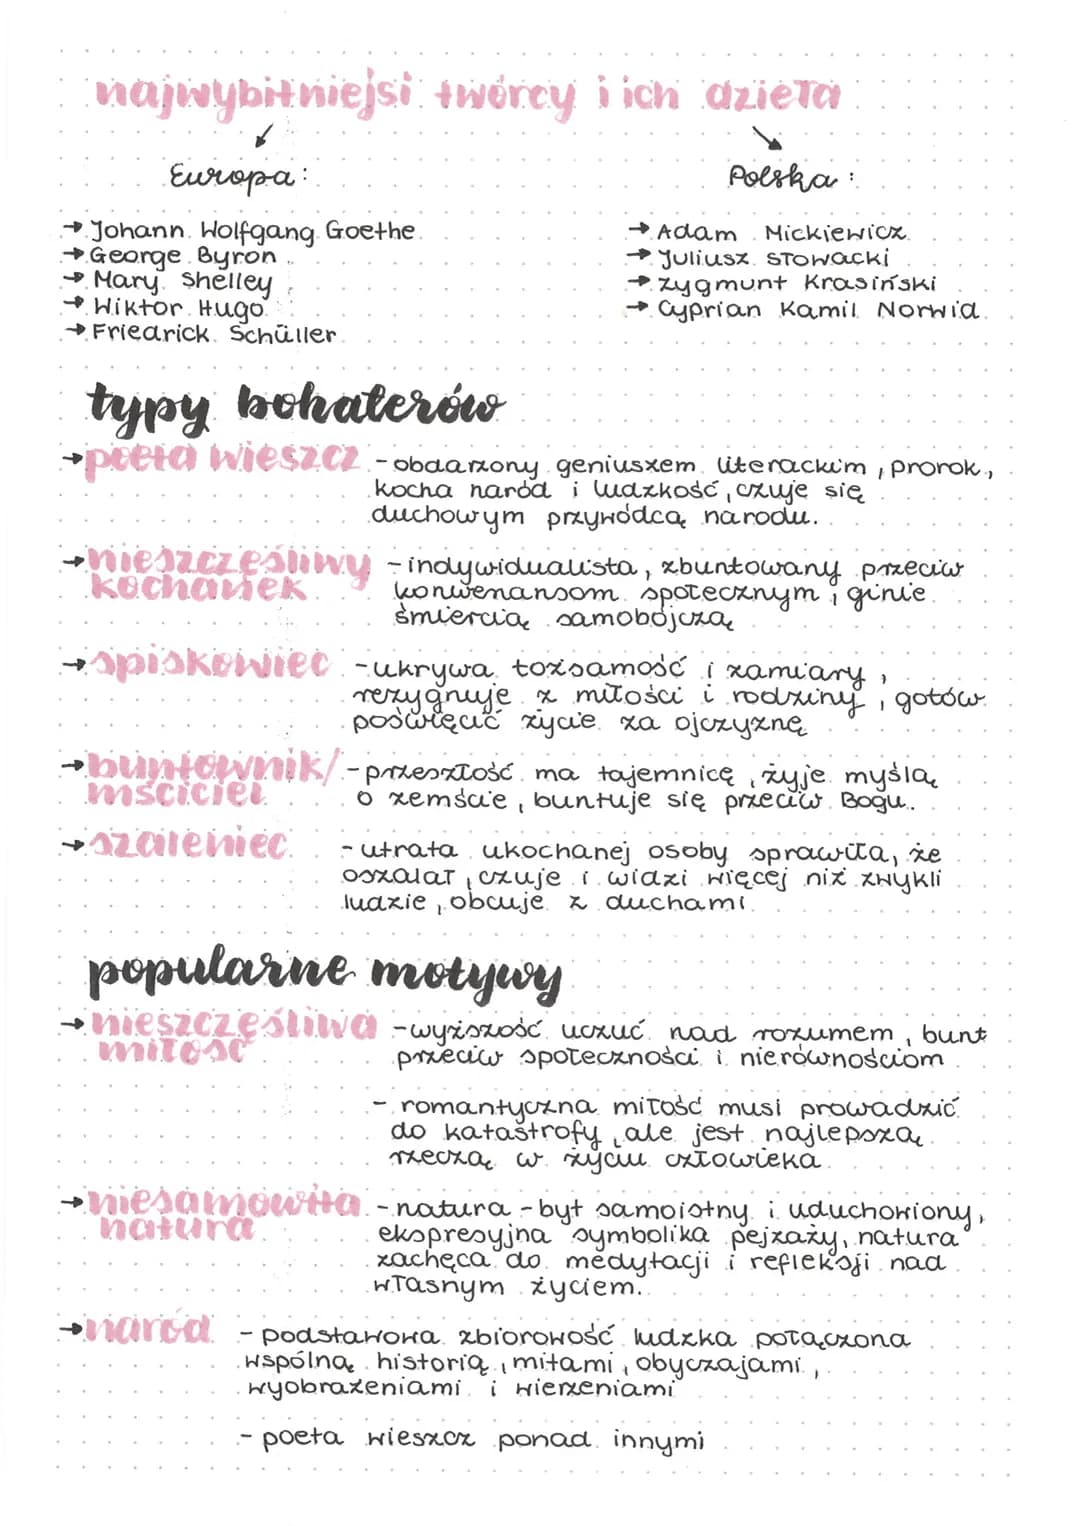 najwybitniejsi twórcy i ich dzieła
Europa:
→ Johann Wolfgang Goethe
→ George Byron
→ Mary Shelley
→ Wiktor Hugo
→ Friedrick Schüller
Polska:
→ Adam Mickiewicz
→ Juliusz Słowacki
→ Zygmunt Krasiński
→ Cyprian Kamil Norwid
typy bohaterów
→ poeta wieszcz - obdarzony geniuszem literackim, prorok,
kocha naród i ludzkość, czuje się
duchowym przywódcą narodu.
→ nieszczęśliwy - indywidualista, zbuntowany przeciw
kochanek konwenansom społecznym, ginie
śmiercią samobójczą
→ spiskowiec - ukrywa tożsamość i zamiary,
rezygnuje z miłości i rodziny, gotów
poświęcić życie za ojczyznę
→ buntownik/ - przeszłość ma tajemnicę, żyje myślą
mściciel o zemście, buntuje się przeciw Bogu.
→ szaleniec - utrata ukochanej osoby sprawiła, że
oszalał, czuje i widzi więcej niż zwykli
ludzie, obcuje z duchami
popularne motywy
→ nieszczęśliwa - wyższość uczuć nad rozumem, bunt
miłość przeciw społeczności i nierównościom
- romantyczna miłość musi prowadzić
do katastrofy, ale jest najlepszą
rzeczą w życiu człowieka
→ niesamowita - natura - byt samoistny i uduchowiony,
natura ekspresyjna symbolika pejzaży, natura
zachęca do medytacji i refleksji nad
własnym życiem.
→ naród - podstawowa zbiorowość ludzka połączona
wspólną historią, mitami, obyczajami,
wyobrażeniami i wierzeniami
- poeta wieszcz ponad innymi